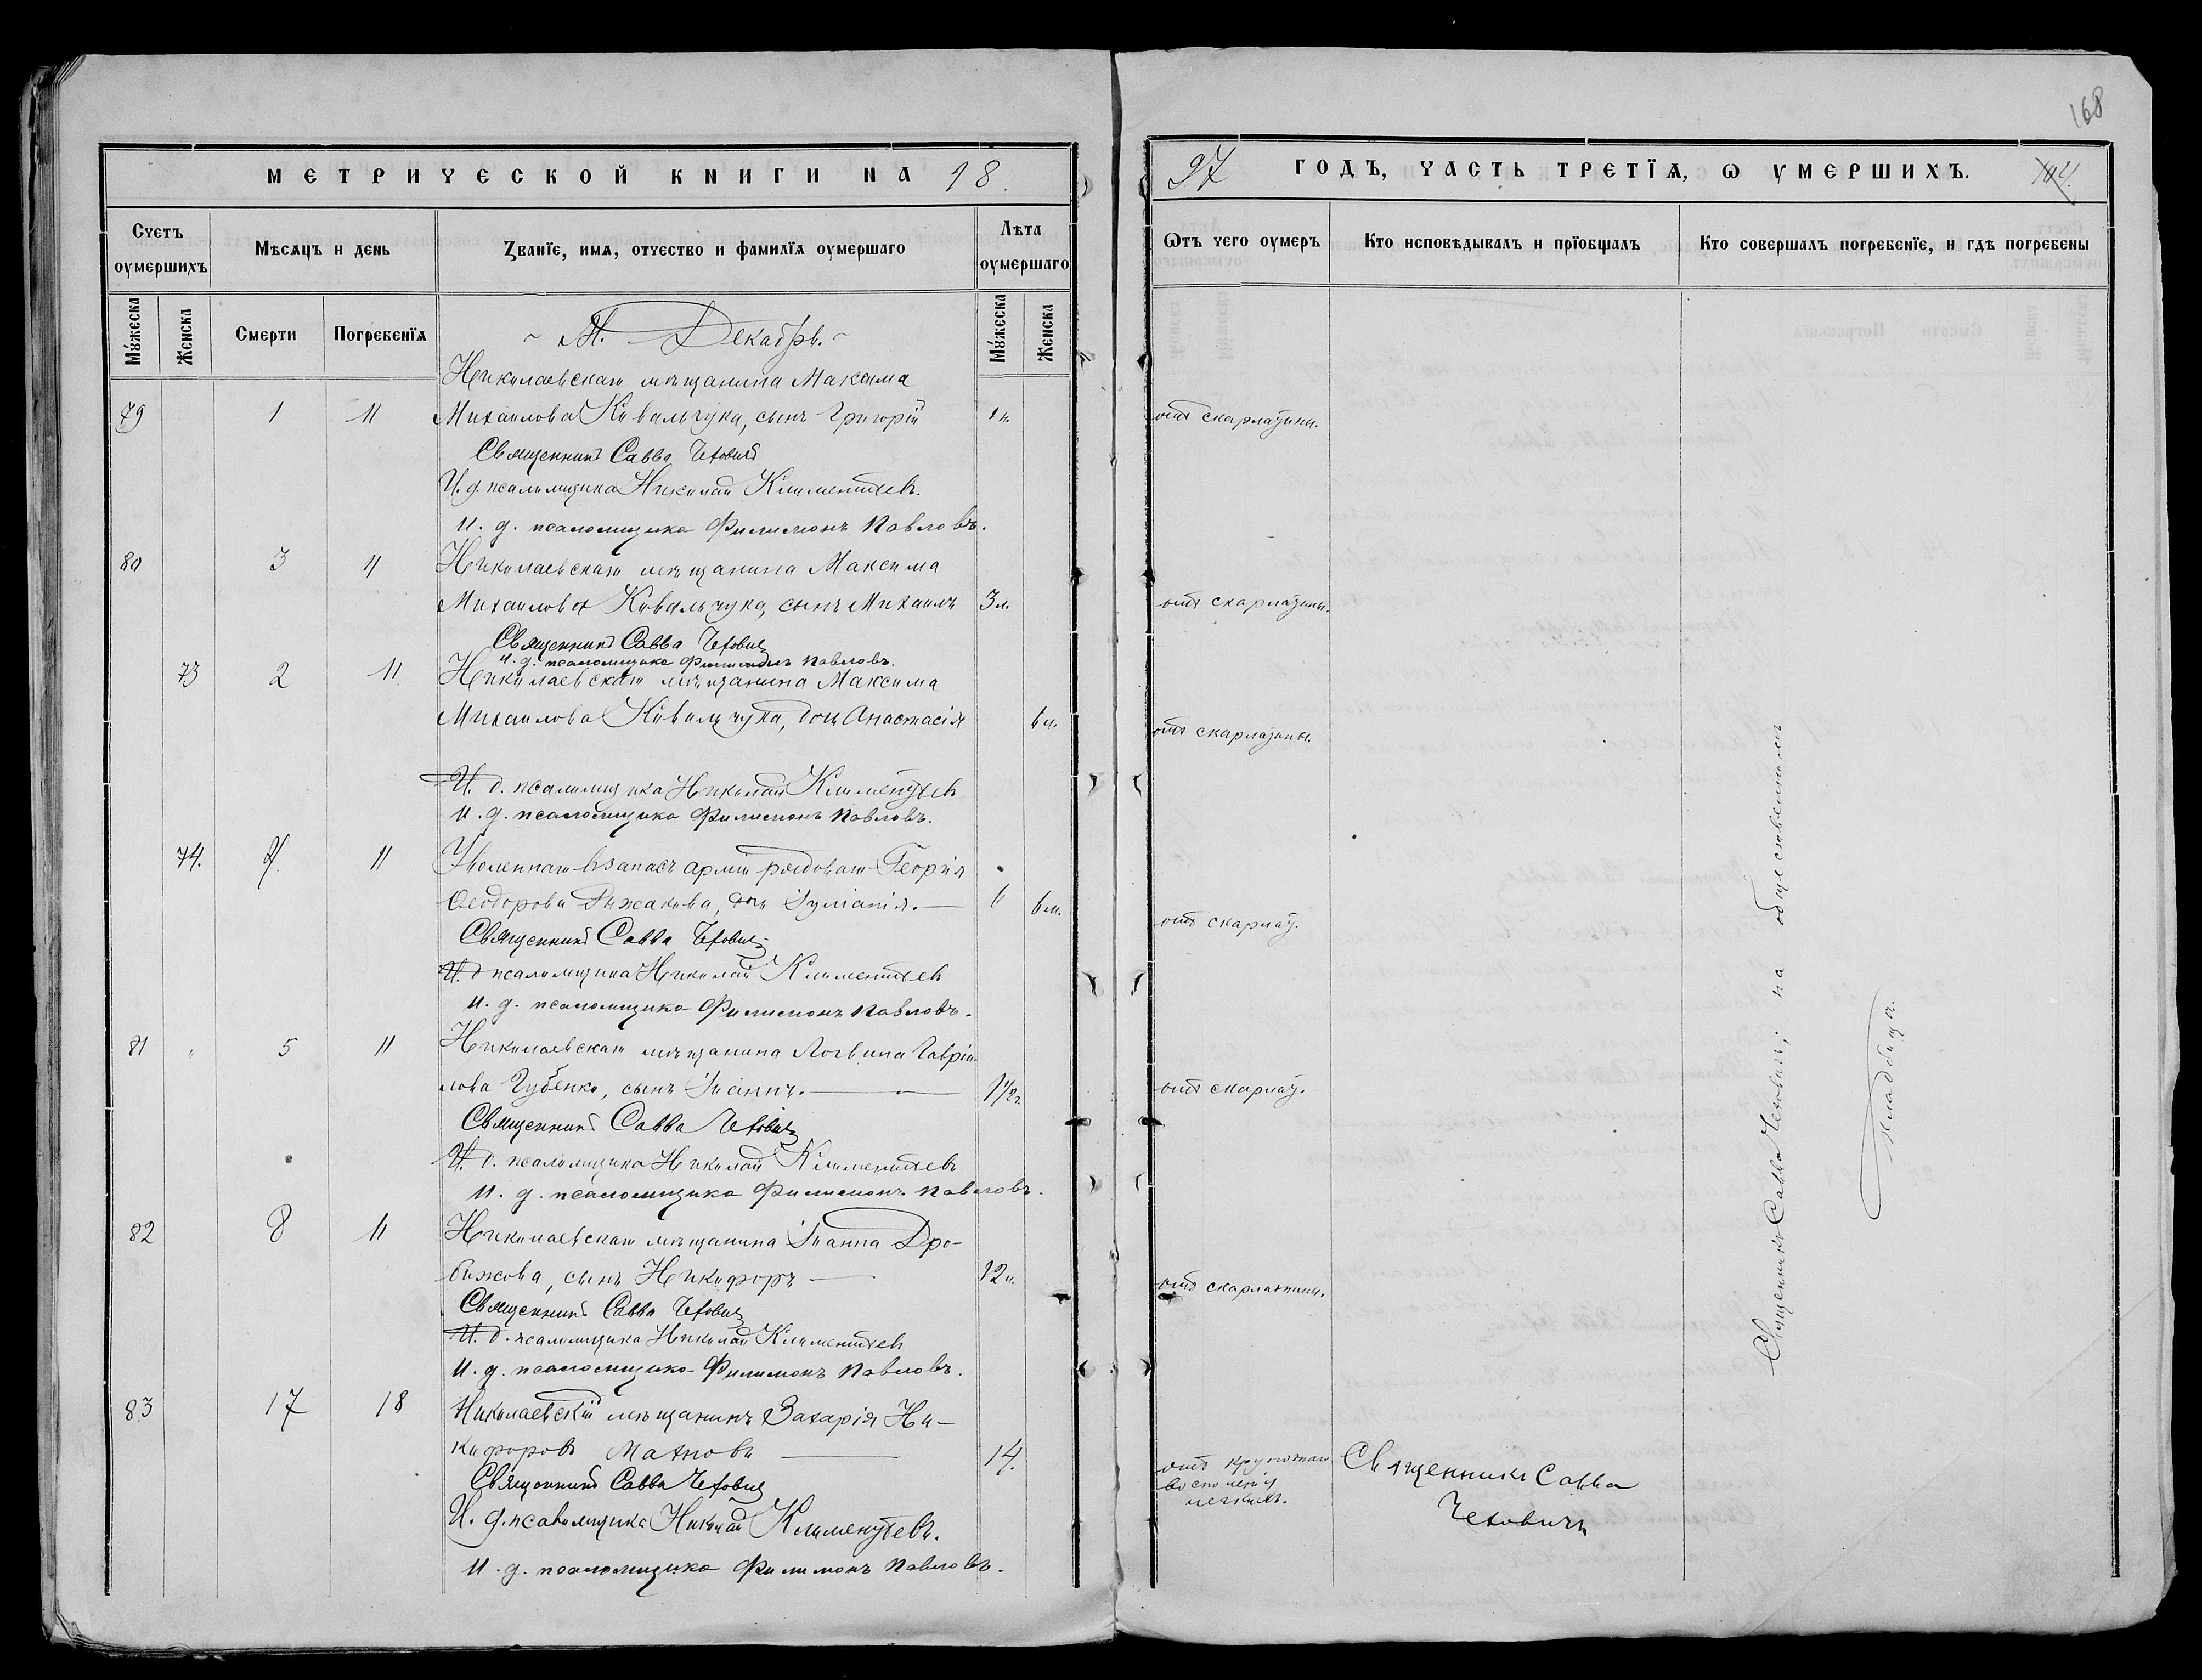 168
МЕТРИЧЕСКОЙ КНИГИ НА 18
97 ГОДЪ, ЧАСТЬ ТРЕТІѦ, Ѡ УМЕРШИХЪ.
Счетъ оумершихъ
Мѣсѧцъ и день
Званїе, имѧ, отчество и фамилїѧ оумершаго
Лѣта оумершаго
Ѿтъ чего оумеръ
Кто исповѣдывалъ и прїобщалъ
Кто совершалъ погребенїе, и гдѣ погребены
Мꙋжеска
Женска
Смерти
Погребенїѧ
Мꙋжеска
Женска
М. Декабрь.
Николаевскаго мѣщанина Максима
79 1 11 Михаилова Ковальчука, сынъ Григорій отъ скарлатины.
Священникъ Савва Чеховичъ
И. д. псаломщика Николай Климентьевъ.
И. д. псаломщика Филимонъ Павловъ.
80 3 11 Николаевскаго мѣщанина Максима
Михаилова Ковальчука, сынъ Михаилъ 3 л. отъ скарлатины.
Священникъ Савва Чеховичъ
И. д. псаломщика Филимонъ Павловъ.
73 2 11 Николаевскаго мѣщанина Максима
Михаилова Ковальчука, дочь Анастасія 6 л. отъ скарлатины.
И. д. псаломщика Николай Климентьевъ
И. д. псаломщика Филимонъ Павловъ.
74. 11 Уволеннаго въ запасъ арміи рядоваго Георгія
Ѳеодорова Рыжакова, дочь Іуліанія. 6 м. отъ скарлат.
Священникъ Савва Чеховичъ
И. д. псаломщика Николай Климентьевъ
И. д. псаломщика Филимонъ Павловъ.
81 5 11 Николаевскаго мѣщанина Логвина Гаврiи-
лова Губенко, сынъ Іоаннъ. 1 1/2 г. отъ скарлат.
Священникъ Савва Чеховичъ
И. д. псаломщика Николай Климентьевъ
И. д. псаломщика Филимонъ Павловъ.
82 8 11 Николаевскаго мѣщанина Іоанна Дро-
бижова, сынъ Никифоръ 12 отъ скарлатины.
Священникъ Савва Чеховичъ
И. д. псаломщика Николай Климентьевъ
И. д. псаломщика Филимонъ Павловъ.
83 17 18 Николаевскій мѣщанинъ Захарія Ни-
кифоровъ Махновъ 14. отъ крупознаго
воспаленія
легкихъ.
Священникъ Савва
Чеховичъ
Священникъ Савва Чеховичъ
И. д. псаломщика Николай Климентьевъ.
И. д. псаломщика Филимонъ Павловъ.
Священникъ Савва Чеховичъ; на общественномъ
кладбищѣ.